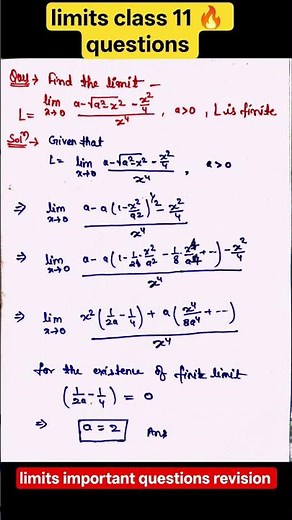 limits class 11 🔥
questions
Ques → Find the limit –
L = lim x→0 (a - √(a² x²) - x²/4) / x⁴ , a>0 , L is finite
Solⁿ → Given that
L = lim x→0 (a - √(a² x²) - x²/4) / x⁴ , a>0
⇒ lim x→0 (a - a(1 - x²/a²)^1/2 - x²/4) / x⁴
⇒ lim x→0 (a - a(1 - 1/2 · x²/a² - 1/8 · x⁴/a⁴ + --) - x²/4) / x⁴
⇒ lim x→0 (x²(1/2a - 1/4) + a(x⁴/8a⁴ + --)) / x⁴
for the existence of finite limit
(1/2a - 1/4) = 0
⇒ a = 2 Ans
limits important questions revision